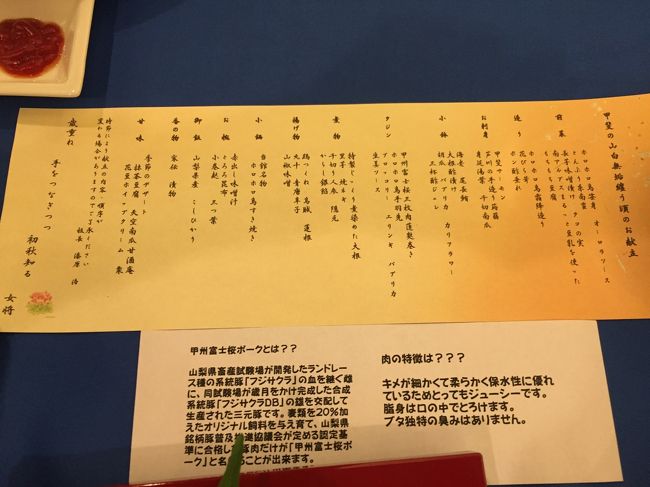 甲斐の山白無垢纏う頃のお献立
前菜
ホロホロ鳥室身 オーロラソース
造り
ホロホロ鳥霜降造り
花びら長芋
ポン酢受れ
お刺身
甲斐サーモン
身延湯葉 千切南瓜
小鉢
海老 尾長鮪
大根酢漬け カリフラワー
胡瓜 パプリカ
三杯酢ジュレ
タジン
甲州富士桜三枚肉蓮麩巻き
ホロホロ鳥手羽先
ブロッコリー エリンギ パプリカ
生姜ソース
煮物
特製じっくり煮染めた大根
里芋 焼ネギ
千切り人参 隠元
からし 銀餡
揚げ物
鶏つくね 鳥賊 蓮根
丸十 青唐辛子
山椒味噌
小鍋
当館名物
ホロホロ鳥すき焼き
お椀
赤出し味噌汁
とろろ昆布
小巻麩 三つ葉
御飯
山梨県産 こしひかり
香の物
家伝 漬物
甘味
季節のデザート
抹茶豆腐 天空南瓜甘酒庵
花豆ホイップクリーム 栗
時節により献立の内容・順序が
変わる場合がありますのでご了承ください
板長 漆原 浩
歳重ね 手をつなぎつつ 初秋知る
女将
甲州富士桜ポークとは？？
山梨県畜産試験場が開発したランドレー
ス種の系統豚「フジザクラ」の血を継ぐ雌
に、同試験場が歳月をかけ完成した合成
系統豚「フジザクラDB」の雄を交配して
生産された三元豚です。麦類を20％加
えたオリジナル飼料を与え育て、山梨県
銘柄豚普及推進協議会が定める認定基
準に合格した豚肉だけが「甲州富士桜ポ
ーク」と名のることが出来ます。
肉の特徴は？？？
キメが細かくて柔らかく保水性に優れ
ているためとってもジューシーです。
脂身は口の中でとろけます。
ブタ独特の臭みはありません。